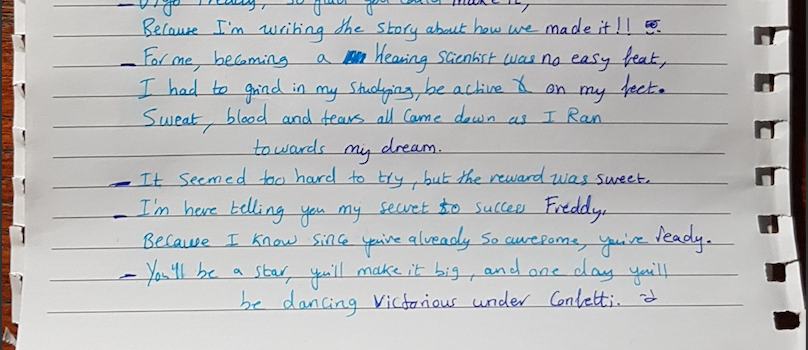 made it,
Because I'm writing the story about how we made it!!
- For me, becoming a Hearing scientist was no easy feat,
I had to grind in my studying, be active & on my feet.
Sweat, blood and tears all came down as I Ran
towards my dream.
- It seemed too hard to try, but the reward was sweet.
- I'm here telling you my secret to success Freddy,
Because I know since you're already so awesome, you're ready.
- You'll be a star, you'll make it big, and one day you'll
be dancing Victorious under Confetti. :)